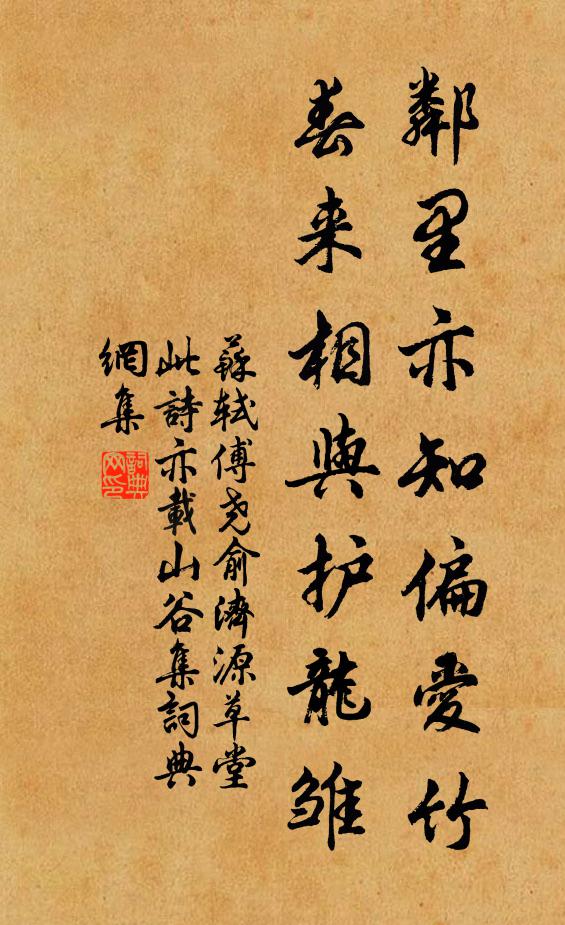 鄰里亦知偏愛竹
春来相與护龍雏
蘇軾傅尧俞濟源草堂
此詩亦載山谷集詞典
網集
詞典
网印